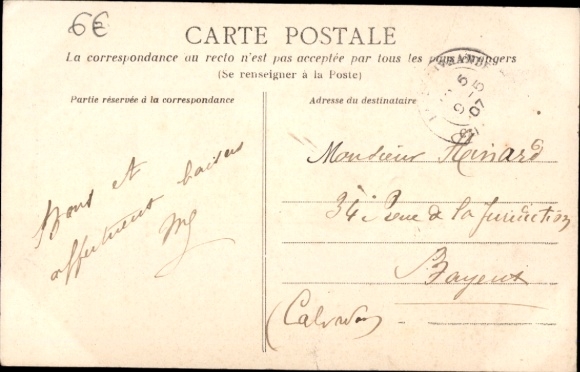 6€
CARTE POSTALE
La correspondance au recto n'est pas acceptée par tous les pays étrangers
(Se renseigner à la Poste)
Partie réservée à la correspondance
Adresse du destinataire
5 -5
07
Bons et
affectueux baisers
Monsieur
34 Rue de la Juridiction
Bayeux
(Calvados)